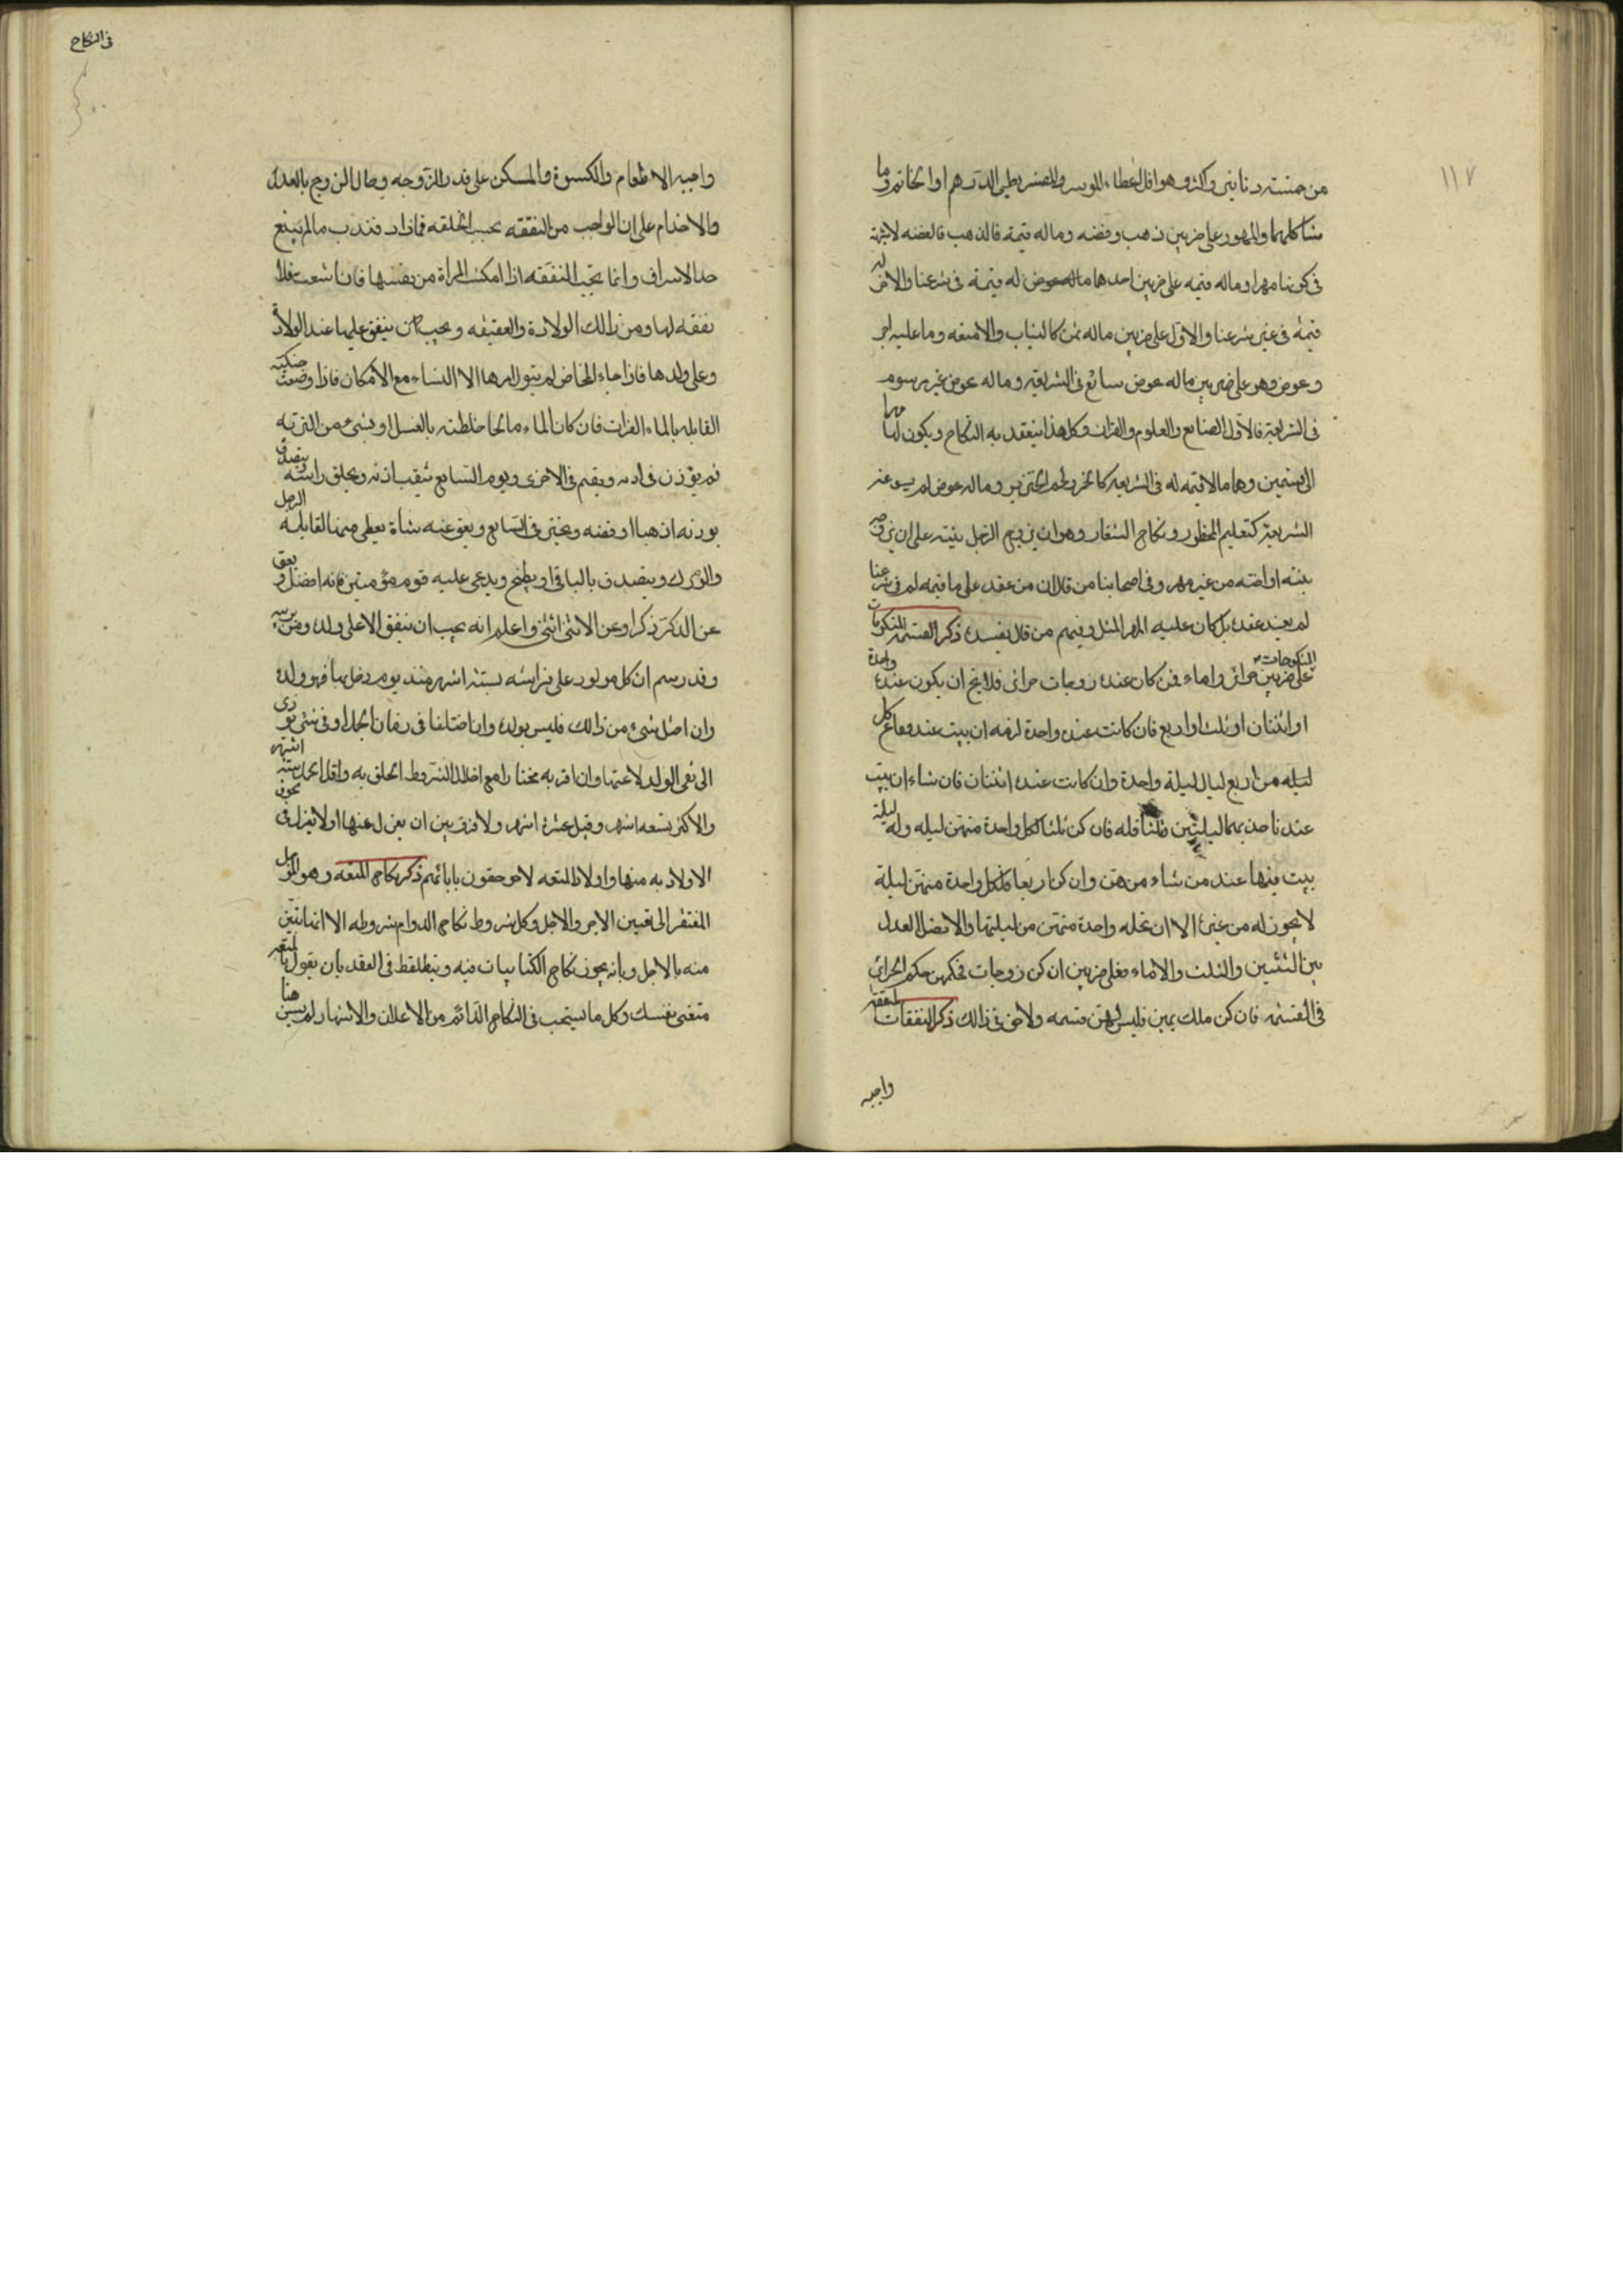 ١١٧
من خمسة دنانير واكثر وهو اقل عطاء الموسر والمعسر يعطى الدرهم او الخاتم وما
شاكلهما والمهور على ضربين ذهب وفضه وماله قيمة فالذهب فالفضه لا شبهة
فى كونها مهرا وماله قيمه على ضربين احدهما ماله عوض له قيمة فى شرعنا والاخر له
قيمة فى غير شرعنا والاول على ضربين ماله ثمن كالثياب والامتعه وما عليه اجر
وعوض وهو على ضربين ماله عوض سائغ فى الشريعة وماله عوض غير مرسوم
فى الشريعة فالاول الصنايع والعلوم والقران وكل هذا ينعقد به النكاح ويكون لها مهرا
الى قسمين وهما مالا قيمه له فى الشريعه كالخمر ولحم الخنزير وماله عوض لم يسوغه
الشريعة كتعليم المحظور ونكاح الشغار وهو ان يزوج الرجل بنته على ان يزوجه
بنته او اخته من غير مهر وفى اصحابنا من قال ان من عقد على ما قيمه له فى شرعنا
لم يفسد عقده بل كان عليه المهر المثل وفيهم من قال يفسده ذكر القسمه المنكوحات
المنكوحات على ضربين حرائر واماء فمن كان عنده زوجات حرائر فلا يخ ان يكون عنده واحدة
او اثنتان او ثلث او اربع فان كانت عنده واحدة لزمه ان يبيت عندها فى كل
ليله من اربع ليال ليلة واحدة وان كانت عنده اثنتان فان شاء ان يبيت
عند احديهما ليلتين او ثلثا فله فان كن ثلثا لكل واحدة منهن ليله وله ليلة
يبيت فيها عند من شاء منهن وان كن اربعا فلكل واحدة منهن ليلة
لا يجوز له من غيره الا ان تحله واحدة منهن من ليلتها والافضل العدل
بين الثنتين والثلث والاماء فعلى ضربين ان كن زوجات فحكمهن حكم الحرائر
فى القسمه فان كن ملك يمين فليس لهن قسمه ولا حق فى ذالك ذكر النفقات النفقه
واجبه
فى النكاح
واجبه الاطعام والكسوة والمسكن على قدر الزوجه وحال الزوج بالعدل
والاخدام على ان الواجب من النفقه بحسب الخلقه فمازاد فندب مالم يبلغ
حد الاسراف وانما تجب النفقه اذا امكنت المراة من نفسها فان امتنعت فلا
نفقه لها ومن ذالك الولادة والعقيقه ويجب ان ينفق عليها عند الولادة
وعلى ولدها فاذا جاء المخاض لم يتول امرها الا النساء مع الامكان فاذا وضعت حنكته
القابله بالماء الفرات فان كان الماء مالحا خلطته بالعسل او بشىء من التربه
ثم يوذن فى اذنه ويقيم فى الاخرى ويوم السابع تثقب اذنه ويحلق راسه ويتصدق
بوزنه ذهبا او فضه ويختن فى السابع ويعق عنه بشاة يعطى منها القابله الرجل
والورك ويتصدق بالباقى او يطبخ ويدعى عليه قوم مؤمنين فانه افضل ويعق
عن الذكر ذكرا وعن الانثى انثى واعلم انه يجب ان ينفق الا على ولده ومن يرسه
وقد رسم ان كل مولود على فراشه بستة اشهر منذ يوم دخل بها فهو ولده
وان اخل شىء من ذالك فليس بولده وان اختلفا فى زمان الحمل او فى شىء يؤدى
الى نفى الولد لاعنها وان اقر به مختارا مع اخلال الشروط الحق به واقل الحمل ستة اشهر
والاكثر تسعه اشهر وقيل عشرة اشهر ولا فرق بين ان يعزل عنها اولا يعزل فى لحوق
الاولاد به منها واولاد المتعه لاحقون بابائهم ذكر نكاح المتعه وهو المؤجل
المفتقر الى تعيين الاجر والاجل وكل شروط نكاح الدوام شروطه الا انها تبين
منه بالاجل وبانه يجوز نكاح الكتابيات فيه ويتلفظ فى العقد بان يقول لمتعة
متعنى نفسك وكل ما يستحب فى النكاح الدائم من الاعلان والاشهار لم يسن هنا